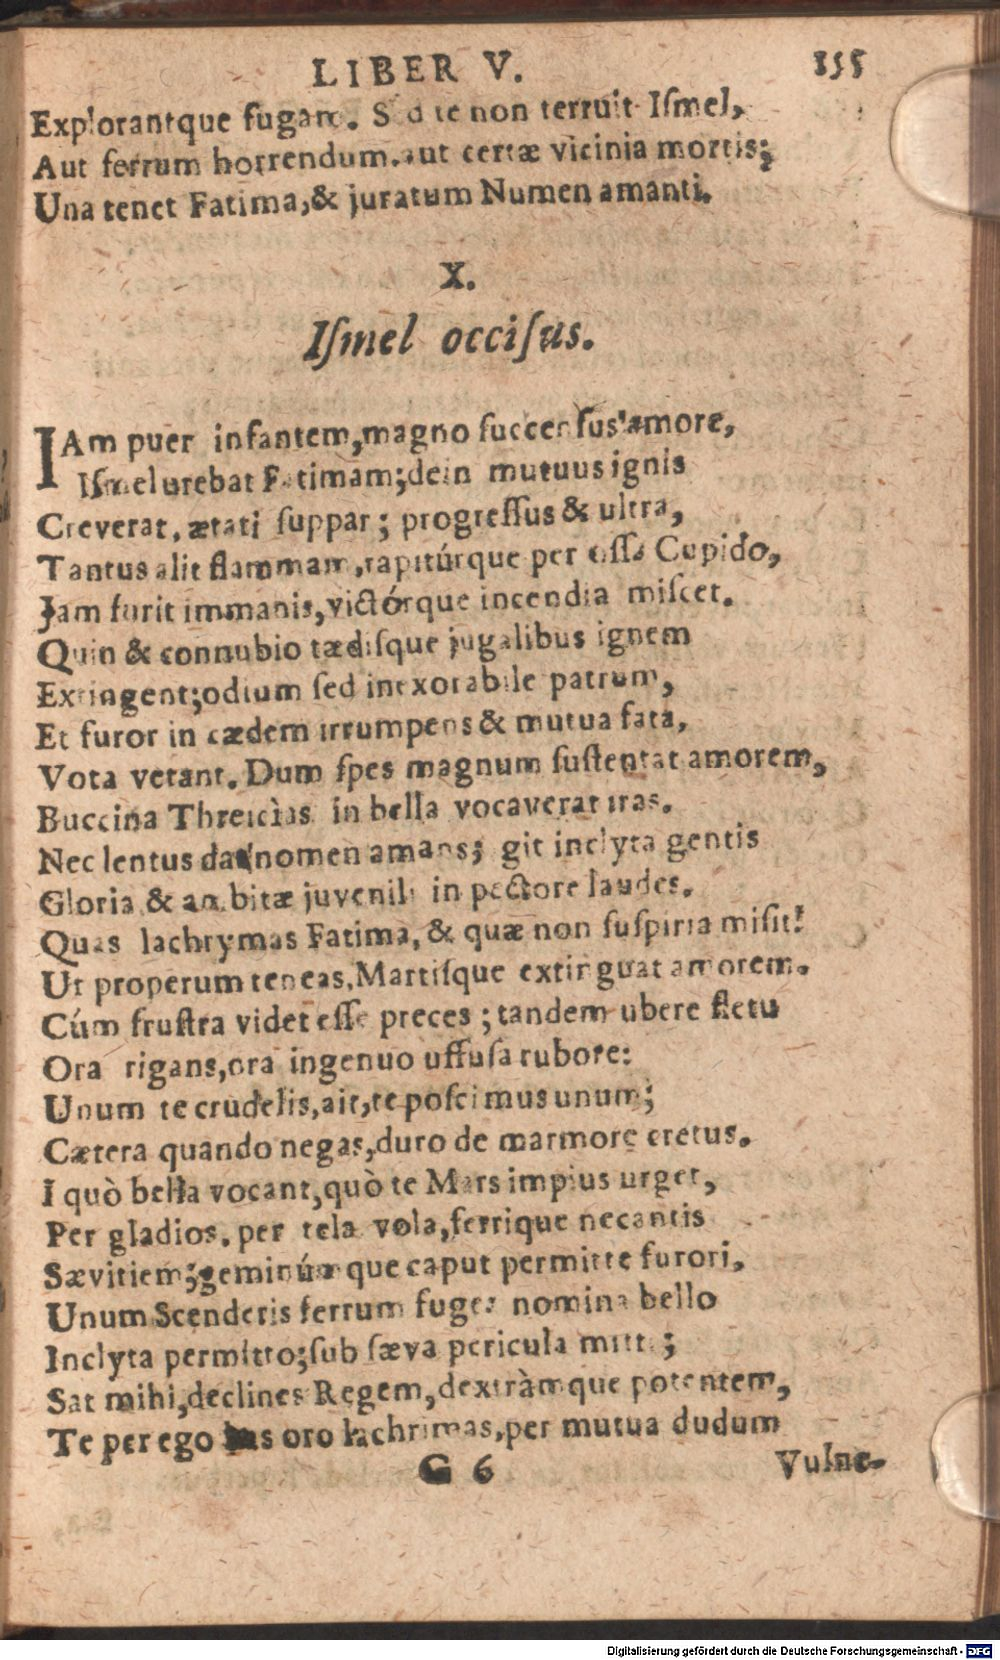 LIBER V. 155
Explorantque fugam. Sed te non terruit Iſmel,
Aut ferrum horrendum, aut certæ vicinia mortis;
Una tenet Fatima, & juratum Numen amanti.
X.
Iſmel occiſus.
IAm puer infantem, magno ſuccenſus amore,
Iſmel urebat Fatimam; dein mutuus ignis
Creverat, ætati ſuppar; progreſſus & ultra,
Tantus alit flammam, rapitúrque per oſſa Cupido,
Jam furit immanis, victórque incendia miſcet.
Quin & connubio tædiſque jugalibus ignem
Extingent; odium ſed inexorabile patrum,
Et furor in cædem irrumpens & mutua fata,
Vota vetant. Dum ſpes magnum ſuſtentat amorem,
Buccina Threicias in bella vocaverat iras.
Nec lentus dat nomen amans; git inclyta gentis
Gloria & ambitæ juvenili in pectore laudes.
Quas lachrymas Fatima, & quæ non ſuſpiria miſit!
Ut properum teneas, Martiſque extinguat amorem.
Cúm fruſtra videt eſſe preces; tandem ubere fletu
Ora rigans, ora ingenuo uffuſa rubore:
Unum te crudelis, ait, te poſcimus unum;
Cætera quando negas, duro de marmore cretus.
I quò bella vocant, quò te Mars impius urget,
Per gladios, per tela vola, ferrique necantis
Sævitiem; geminúmque caput permitte furori,
Unum Scenderis ferrum fuge: nomina bello
Inclyta permitto; ſub ſæva pericula mitt ;
Sat mihi, declines Regem, dextràmque potentem,
Te per ego has oro lachrimas, per mutua dudum
G 6 Vulne-
Digitalisierung gefördert durch die Deutsche Forschungsgemeinschaft - DFG